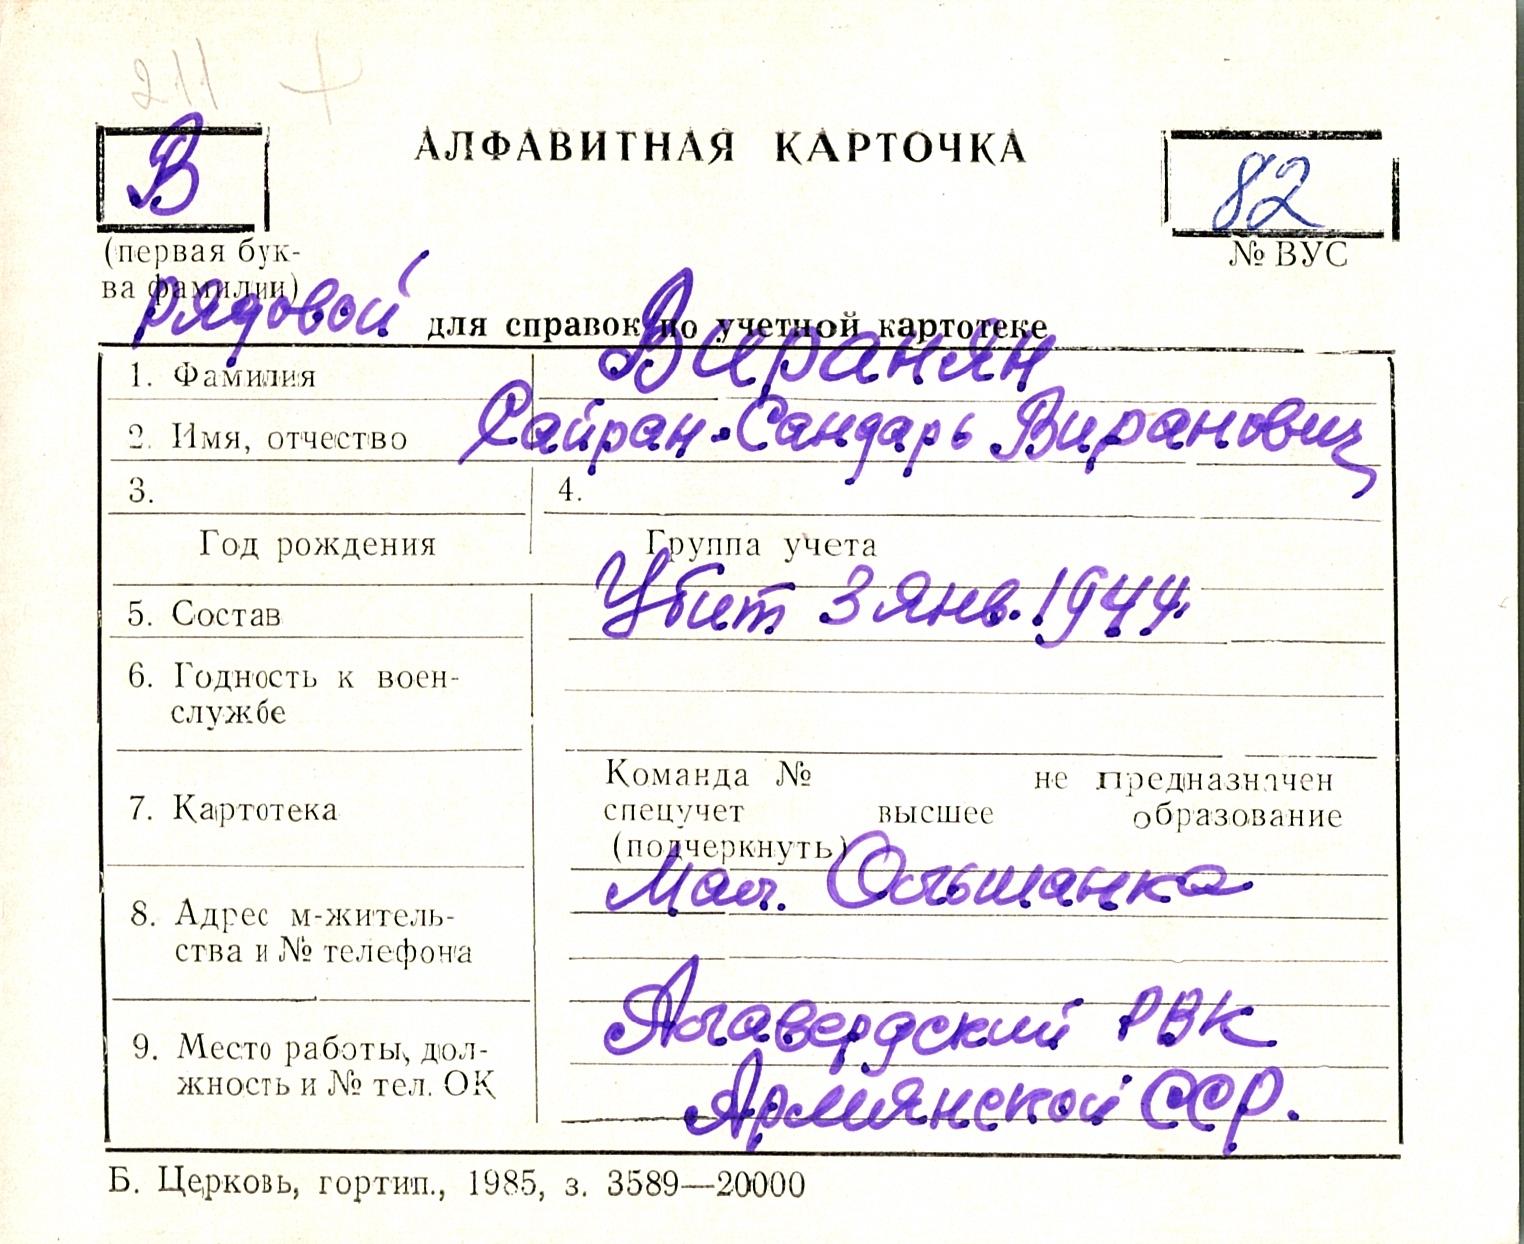 211 +
В
АЛФАВИТНАЯ КАРТОЧКА
82
(первая бук-
ва фамилии)
№ ВУС
рядовой
для справок по учетной картотеке
1. Фамилия
Виранян
2. Имя, отчество
Сайран-Сандарь Виранович
3.
4.
Год рождения
Группа учета
5. Состав
Убит 3 янв. 1944.
6. Годность к воен-
службе
7. Картотека
Команда № не предназначен
спецучет высшее образование
(подчеркнуть)
8. Адрес м-житель-
ства и № телефона
Мал. Ольшанка
9. Место работы, дол-
жность и № тел. ОК
Алавердский РВК
Армянской ССР.
Б. Церковь, гортип., 1985, з. 3589—20000